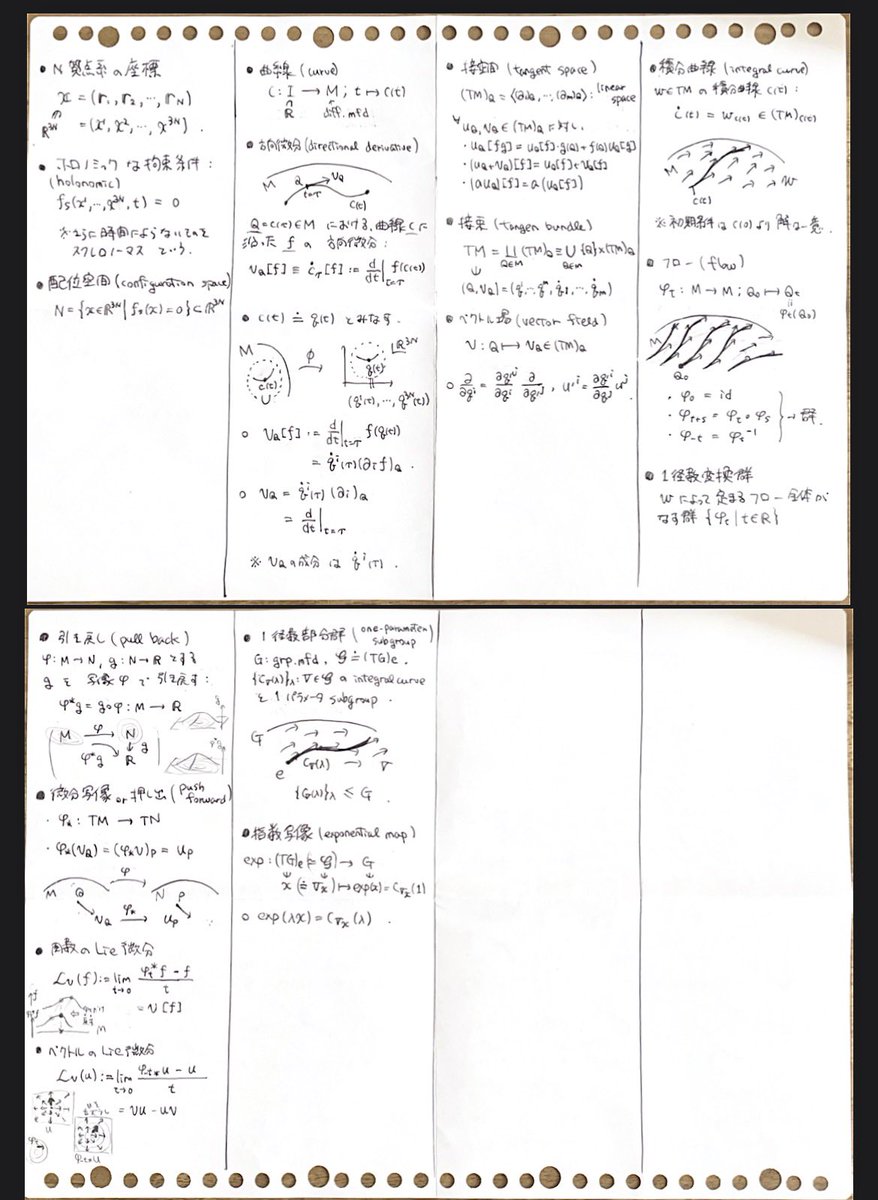 ・N質点系の座標
x = (r₁, r₂, …, r_N)
R³ᴺ = (x¹, x², …, x³ᴺ).
・ホロノミックな拘束条件:
(holonomic)
fs(x¹, …, x³ᴺ, t) = 0
※さらに時間によらないものを
スクレロノーマスという.
・配位空間 (configuration space)
N = {x∈R³ᴺ | fs(x) = 0} ⊂ R³ᴺ
・曲線 (curve)
C: I → M; t ↦ C(t)
R diff. mfd
・方向微分 (directional derivative)
M Q v_Q
t=τ C(t)
Q = C(τ)∈M における, 曲線 C に
沿った f の方向微分:
v_Q[f] ≡ ċ_τ[f] := d/dt|t=τ f(C(t))
・C(t) ≐ q(t) とみなす.
M φ R³ᴺ
C(t) q(t)
U (q¹(t), …, q³ᴺ(t))
○ v_Q[f] := d/dt|t=τ f(q(t))
= q̇ⁱ(τ)(∂ᵢf)_Q.
○ v_Q = q̇ⁱ(τ)(∂ᵢ)_Q
= d/dt|t=τ
※ v_Q の成分は q̇ⁱ(τ).
・接空間 (tangent space)
(TM)_Q = ⟨(∂₁)_Q, …, (∂m)_Q⟩: linear space
∀u_Q, v_Q ∈ (TM)_Q に対し,
・u_Q[fg] = u_Q[f]·g(Q) + f(Q)u_Q[g]
・(u_Q+v_Q)[f] = u_Q[f] + v_Q[f]
・(au_Q)[f] = a(u_Q[f])
・接束 (tangen bundle)
TM = ⨆_{Q∈M} (TM)_Q ≡ ⋃_{Q∈M} {Q}×(TM)_Q
(Q, v_Q) = (q¹, …, qᵐ, q̇¹, …, q̇ᵐ)
・ベクトル場 (vector field)
v: Q ↦ v_Q ∈ (TM)_Q
○ ∂/∂qⁱ = ∂q'ʲ/∂qⁱ ∂/∂q'ʲ, u'ⁱ = ∂q'ⁱ/∂qʲ uʲ
・積分曲線 (integral curve)
w∈TM の積分曲線 C(t):
ċ(t) = w_C(t) ∈ (TM)_C(t)
M w
C(t)
※初期条件は C(0) より解は一意.
・フロー (flow)
φt: M → M; Q₀ ↦ Qt
φt(Q₀)
M
Q₀
・φ₀ = id
・φt+s = φt∘φs → 群.
・φ-t = φt⁻¹
・1径数変換群
w によって定まるフロー全体が
なす群 {φt | t∈R}
・引き戻し (pull back)
φ: M→N, g: N→R とする
g を写像 φ で引き戻す:
φ*g = g∘φ: M → R
M φ N g
φ*g ↓g
R φ*g
・微分写像 or 押し出し (push forward)
・φ*: TM → TN
・φ*(v_Q) = (φ*v)_P = u_P
φ
M Q N P
v_Q φ* u_P
・関数のLie微分
ℒv(f) := lim t→0 (φt*f − f)/t
= v[f]
M
・ベクトルのLie微分
ℒv(u) := lim t→0 (φ-t*u − u)/t
= vu − uv
u
φ-t*u
・1径数部分群 (one-parameter subgroup)
G: grp. mfd, 𝔤 ≐ (TG)e.
{Cv(λ)}λ: v∈𝔤 の integral curve
を 1パラメータ subgroup.
G
e Cv(λ) v
{C(λ)}λ ≤ G.
・指数写像 (exponential map)
exp: (TG)e(≐𝔤) → G
x(≐vx) ↦ exp(x) = Cvx(1)
○ exp(λx) = Cvx(λ).